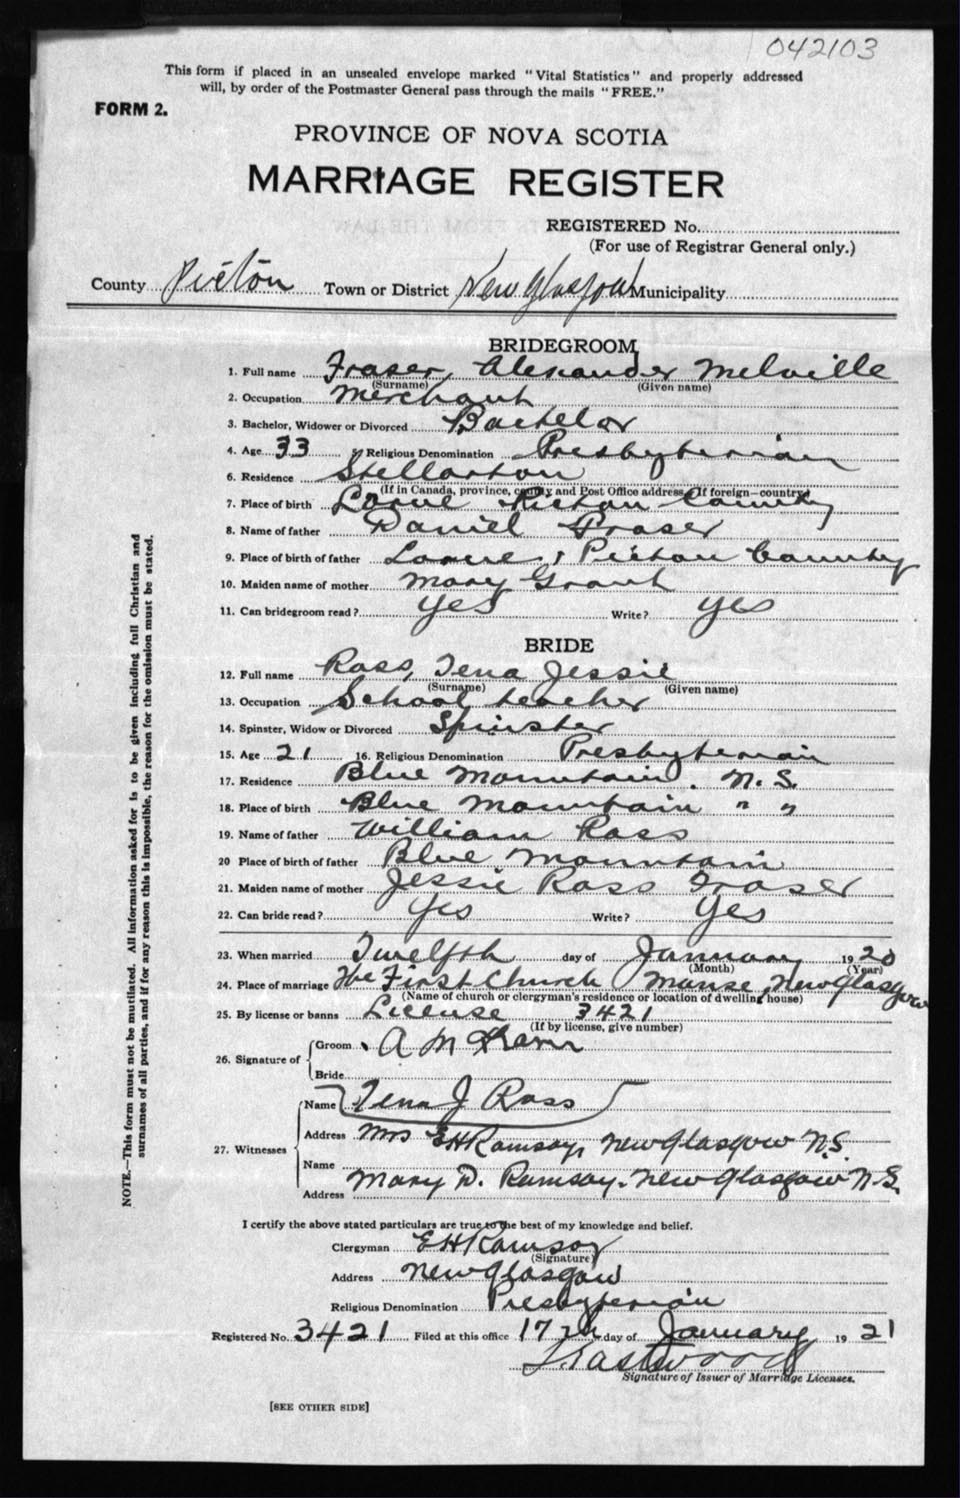 042103
This form if placed in an unsealed envelope marked "Vital Statistics" and properly addressed
will, by order of the Postmaster General pass through the mails "FREE."
FORM 2.
PROVINCE OF NOVA SCOTIA
MARRIAGE REGISTER
REGISTERED No.
(For use of Registrar General only.)
County Pictou Town or District New Glasgow Municipality
BRIDEGROOM
1. Full name Fraser, Alexander Melville
(Surname) (Given name)
2. Occupation Merchant
3. Bachelor, Widower or Divorced Bachelor
4. Age 33 5. Religious Denomination Presbyterian
6. Residence Stellarton
(If in Canada, province, county and Post Office address. If foreign—country)
7. Place of birth Lorne Pictou County
8. Name of father Daniel Fraser
9. Place of birth of father Lorne, Pictou County
10. Maiden name of mother Mary Grant
11. Can bridegroom read? Yes Write? Yes
BRIDE
12. Full name Ross, Tena Jessie
(Surname) (Given name)
13. Occupation School teacher
14. Spinster, Widow or Divorced Spinster
15. Age 21 16. Religious Denomination Presbyterian
17. Residence Blue Mountain. N. S.
18. Place of birth Blue Mountain " "
19. Name of father William Ross
20 Place of birth of father Blue Mountain
21. Maiden name of mother Jessie Ross Fraser
22. Can bride read? Yes Write? Yes
23. When married Twelfth day of January 1920
(Month) (Year)
24. Place of marriage The First Church Manse, New Glasgow
(Name of church or clergyman's residence or location of dwelling house)
25. By license or banns License 3421
(If by license, give number)
26. Signature of Groom A M
Bride
Name Tena J Ross
27. Witnesses Address Mrs EH Ramsay, New Glasgow N.S.
Name
Address Mary D. Ramsay. New Glasgow N.S.
I certify the above stated particulars are true to the best of my knowledge and belief.
Clergyman EH Ramsay
(Signature)
Address New Glasgow
Religious Denomination Presbyterian
Registered No. 3421 Filed at this office 17th day of January 1921
Eastwood
Signature of Issuer of Marriage Licenses.
[SEE OTHER SIDE]
NOTE.—This form must not be mutilated. All information asked for is to be given including full Christian and
surnames of all parties, and if for any reason this is impossible, the reason for the omission must be stated.